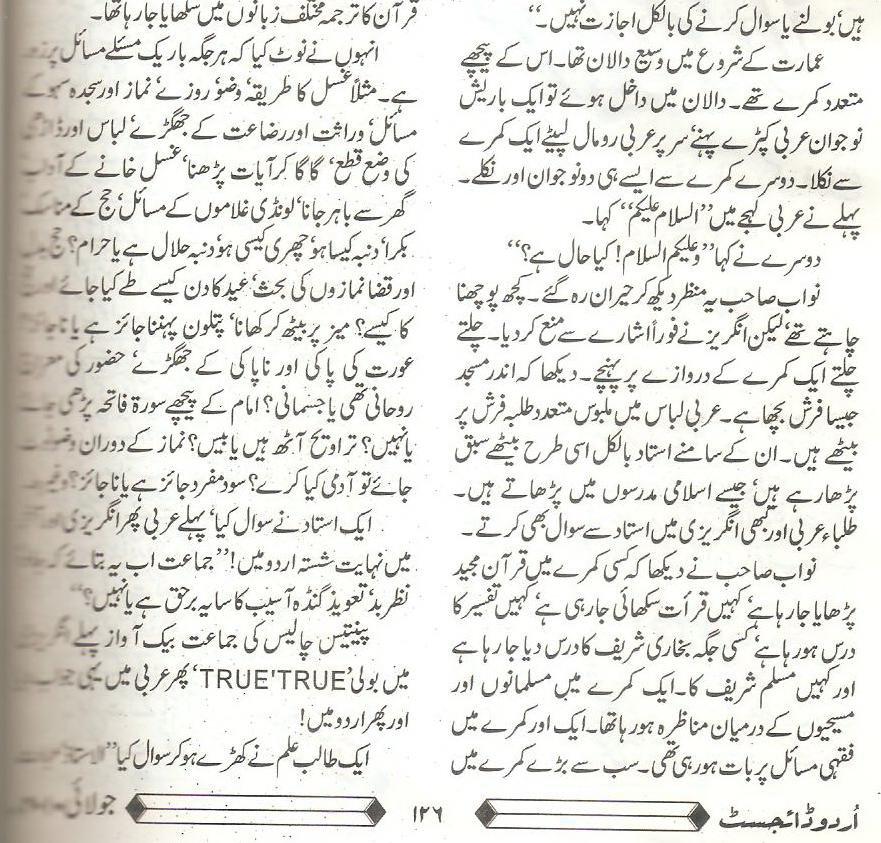 ہیں‘ بولنے یا سوال کرنے کی بالکل اجازت نہیں۔‘‘
عمارت کے شروع میں وسیع دالان تھا۔ اس کے پیچھے
متعدد کمرے تھے۔ دالان میں داخل ہوئے تو ایک باریش
نوجوان عربی کپڑے پہنے‘ سر پر عربی رومال لپیٹے ایک کمرے
سے نکلا۔ دوسرے کمرے سے ایسے ہی دو نوجوان اور نکلے۔
پہلے نے عربی لہجے میں ’’السلام علیکم‘‘ کہا۔
دوسرے نے کہا ’’وعلیکم السلام! کیا حال ہے؟‘‘
نواب صاحب یہ منظر دیکھ کر حیران رہ گئے۔ کچھ پوچھنا
چاہتے تھے‘ لیکن انگریز نے فوراً اشارے سے منع کردیا۔ چلتے
چلتے ایک کمرے کے دروازے پر پہنچے۔ دیکھا کہ اندر مسجد
جیسا فرش بچھا ہے۔ عربی لباس میں ملبوس متعدد طلبہ فرش پر
بیٹھے ہیں۔ ان کے سامنے استاد بالکل اسی طرح بیٹھے سبق
پڑھا رہے ہیں‘ جیسے اسلامی مدرسوں میں پڑھاتے ہیں۔
طلباء عربی اور کبھی انگریزی میں استاد سے سوال بھی کرتے۔
نواب صاحب نے دیکھا کہ کسی کمرے میں قرآن مجید
پڑھایا جا رہا ہے‘ کہیں قرأت سکھائی جا رہی ہے‘ کہیں تفسیر کا
درس ہو رہا ہے‘ کسی جگہ بخاری شریف کا درس دیا جا رہا ہے
اور کہیں مسلم شریف کا۔ ایک کمرے میں مسلمانوں اور
مسیحیوں کے درمیان مناظرہ ہو رہا تھا۔ ایک اور کمرے میں
فقہی مسائل پر بات ہو رہی تھی۔ سب سے بڑے کمرے میں
قرآن کا ترجمہ مختلف زبانوں میں سکھایا جا رہا تھا۔
انہوں نے نوٹ کیا کہ ہر جگہ باریک مسئلے مسائل پر زور
ہے۔ مثلاً غسل کا طریقہ‘ وضو‘ روزے‘ نماز اور سجدہ سہو کے
مسائل‘ وراثت اور رضاعت کے جھگڑے‘ لباس اور ڈاڑھی
کی وضع قطع‘ گا گا کر آیات پڑھنا‘ غسل خانے کے آداب
گھر سے باہر جانا‘ لونڈی غلاموں کے مسائل‘ حج کے مناسک
بکرا‘ دنبہ کیسا ہو‘ چھری کیسی ہو‘ دنبہ حلال ہے یا حرام؟ حج
اور قضا نمازوں کی بحث‘ عید کا دن کیسے طے کیا جائے اور
کا کیسے؟ میز پر بیٹھ کر کھانا‘ پتلون پہننا جائز ہے یا ناجائز
عورت کی پاکی اور ناپاکی کے جھگڑے‘ حضور کی معراج
روحانی تھی یا جسمانی؟ امام کے پیچھے سورۃ فاتحہ پڑھی جائے
یا نہیں؟ تراویح آٹھ ہیں یا بیس؟ نماز کے دوران وضو
جائے تو آدمی کیا کرے؟ سود مفرد جائز ہے یا ناجائز؟ وغیرہ
ایک استاد نے سوال کیا‘ پہلے عربی پھر انگریزی اور
میں نہایت شستہ اردو میں! ’’جماعت اب یہ بتائے کہ
نظر بد‘ تعویذ گنڈہ آسیب کا سایہ برحق ہے یا نہیں؟‘‘
پینتیس چالیس کی جماعت بیک آواز پہلے انگریزی
میں بولی ’TRUE'TRUE‘ پھر عربی میں یہی جواب
اور پھر اردو میں!
ایک طالب علم نے کھڑے ہو کر سوال کیا ’’الاستاد
اُردو ڈائجسٹ ۱۲۶ جولائی